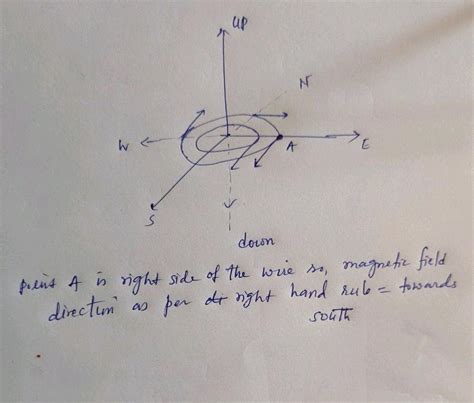 UP
N
W
A
E
S
down
point A is right side of the wire so, magnetic field
direction as per right hand rule = towards
south